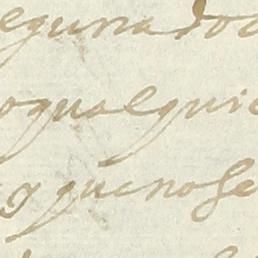 eguna do
o qualqui
y que no se